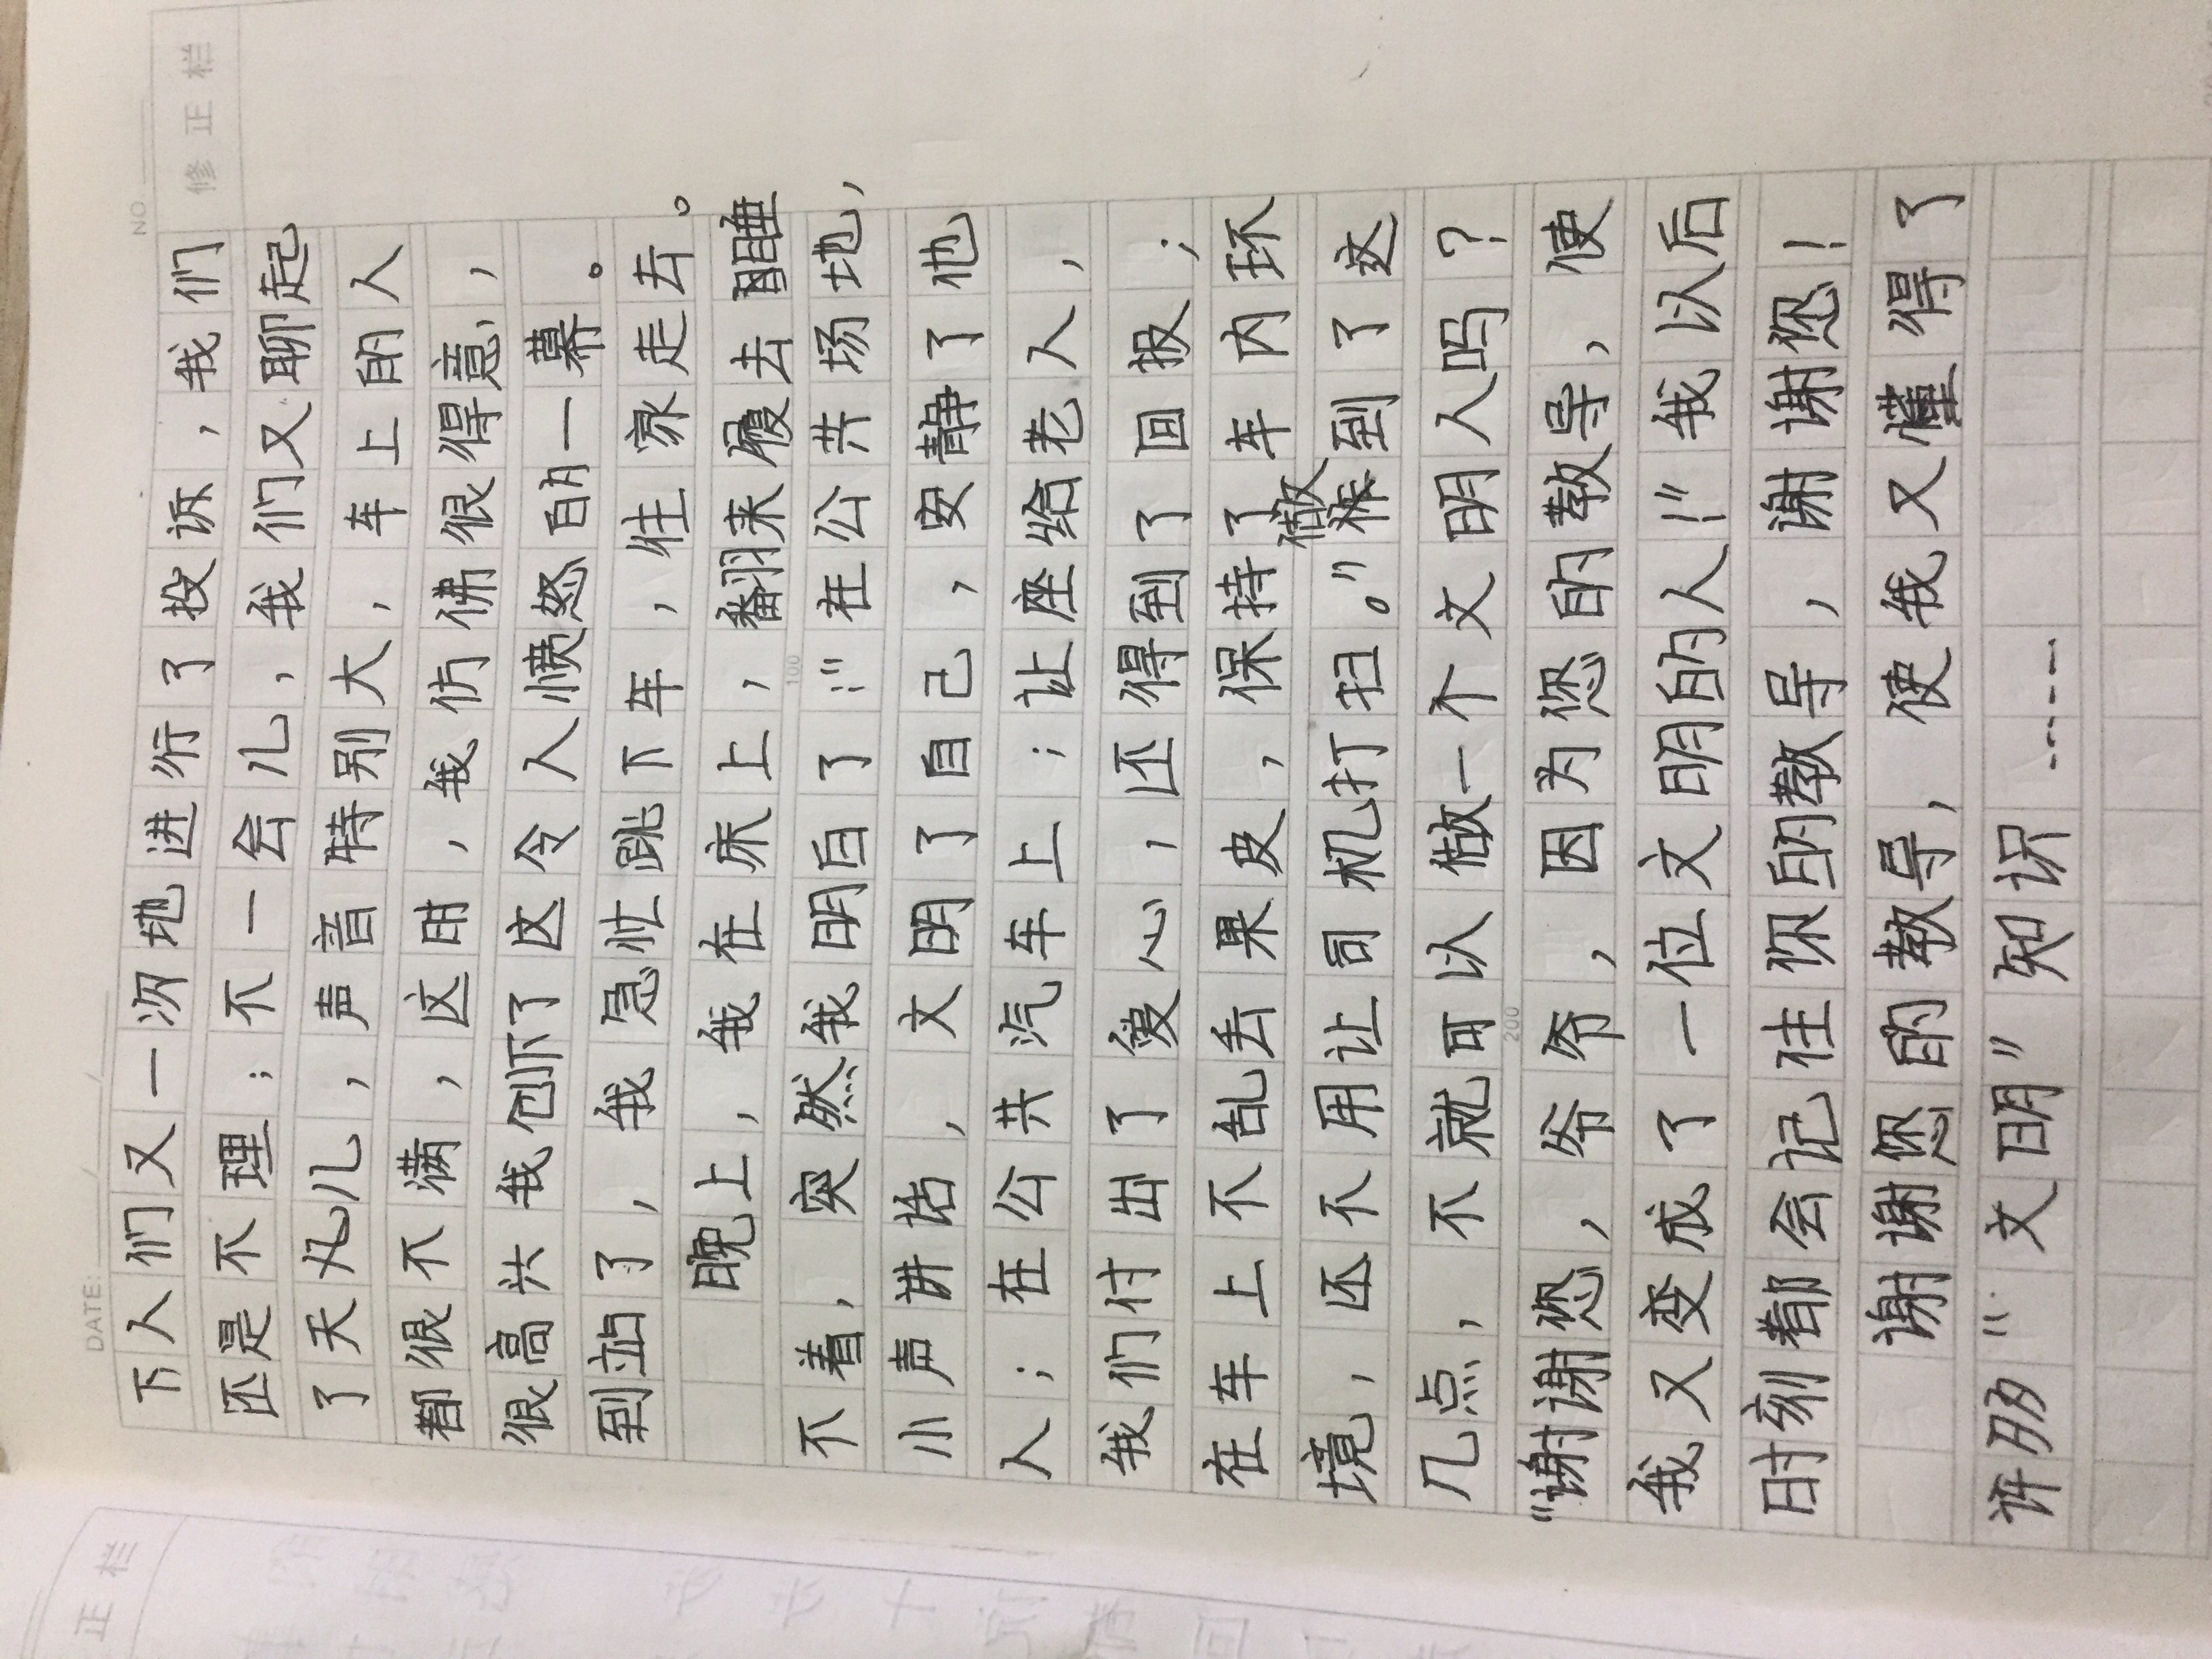 NO.
DATE: / /
修正栏
下人们又一次地进行了投诉，我们
还是不理；不一会儿，我们又聊起
了天儿，声音特别大，车上的人
都很不满，这时，我仿佛很得意，
很高兴我创下了这令人愤怒的一幕。
到站了，我急忙跳下车，往家走去。
晚上，我在床上，翻来覆去睡
不着，突然我明白了：“在公共场地，
小声讲话，文明了自己，安静了他
人；在公共汽车上；让座给老人，
我们付出了爱心，还得到了回报；
在车上不乱丢果皮，保持了车内环
境，还不用让司机打扫。”做到了这
几点，不就可以做一个文明人吗？
“谢谢您，爷爷，因为您的教导，使
我又变成了一位文明的人！”我以后
时刻都会记住你的教导，谢谢您！
谢谢您的教导，使我又懂得了
许多“文明”知识……
100
200
正栏